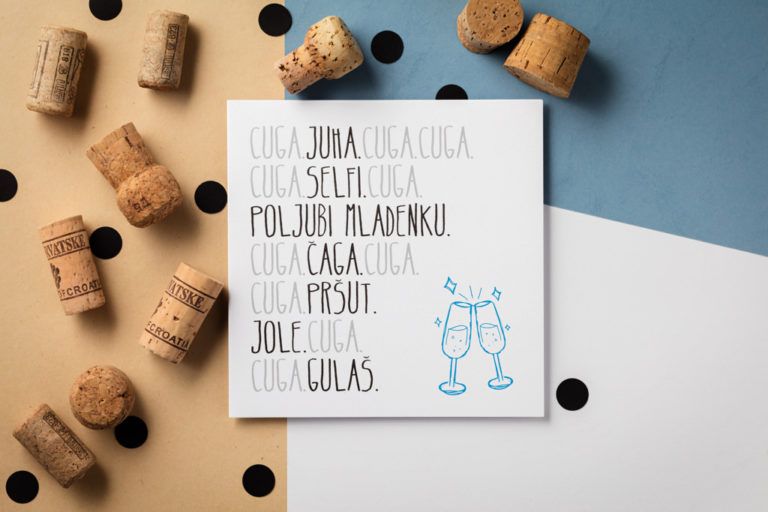 CUGA.JUHA.CUGA.CUGA.
CUGA.SELFI.CUGA.
POLJUBI MLADENKU.
CUGA.ČAGA.CUGA.
CUGA.PRŠUT.
JOLE.CUGA.
CUGA.GULAŠ.
VATSKE
OF CROATI
VATSKE
OF CROATI